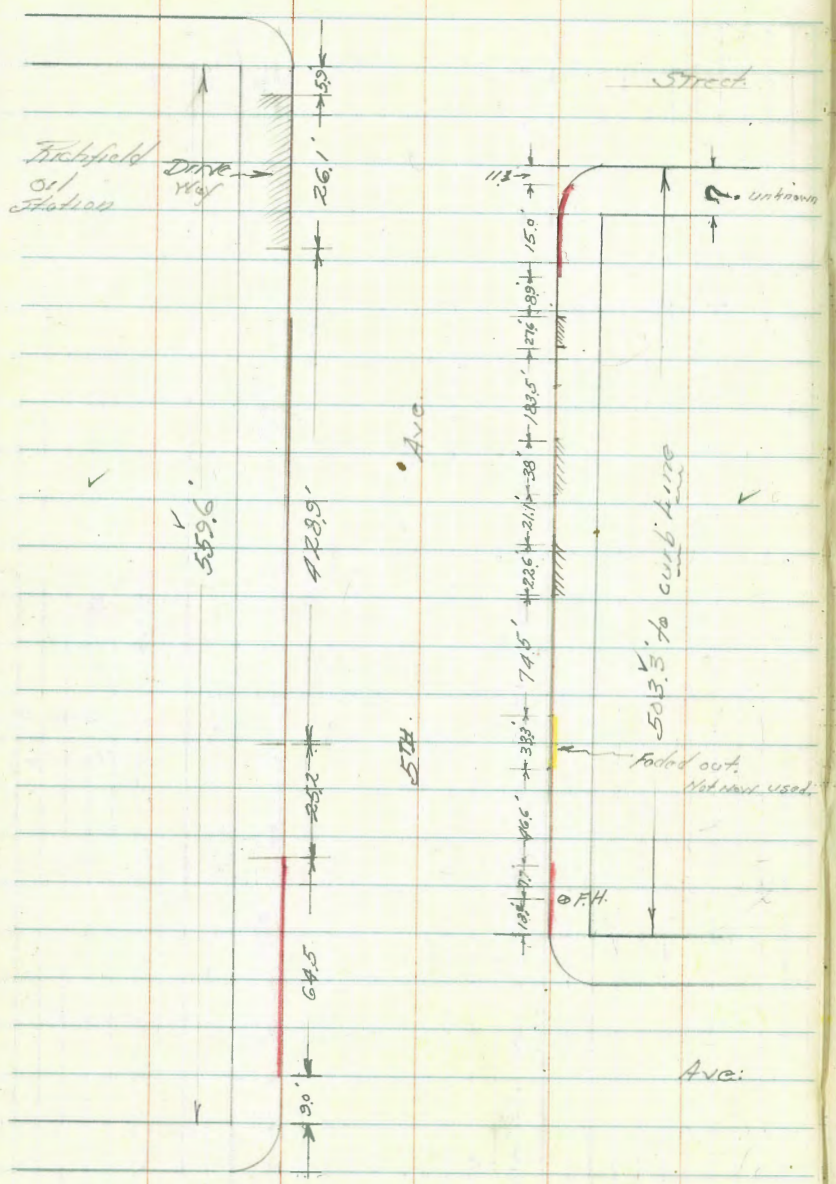 Street.
Richfield
Oil
Station
Drive
Way
5.9'
26.1'
559.6'
428.9'
25.2
64.5
9.0'
5TH.
Ave.
11.3
15.0'
8.9
27.6'
183.5'
38'
21.1'
22.6'
74.5'
33.3'
46.6'
7.7
?. unknown
503.3' to curb line
Faded out.
Not now used.
F.H.
Ave.